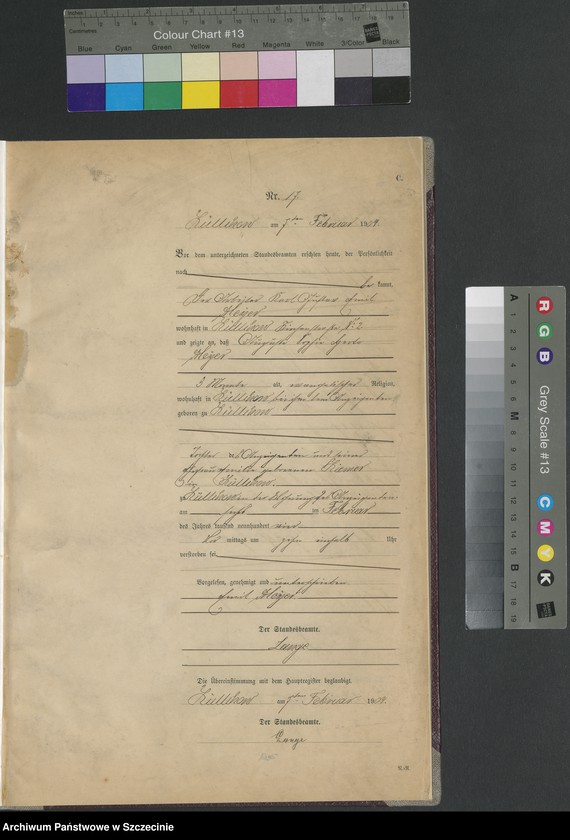 Colour Chart #13
Blue Cyan Green Yellow Red Magenta White 3/Color Black
C.
Nr. 17.
Züllchow am 7ten Februar 1904.
Vor dem unterzeichneten Standesbeamten erschien heute, der Persönlichkeit
nach
be kannt,
der Arbeiter Karl Gustav Emil
Meyer
wohnhaft in Züllchow Kirchenstraße № 2
und zeigte an, daß Auguste Sophie
Meyer
3 Monate alt, evangelischer Religion,
wohnhaft in Züllchow bei dem Anzeigenden
geboren zu Züllchow
Tochter des Anzeigenden und seiner
Ehefrau Emilie geborenen
in Züllchow
zu Züllchow in der Wohnung des Anzeigenden
am sechs ten Februar
des Jahres tausend neunhundert vier
Vor mittags um zehn einhalb Uhr
verstorben sei.
Vorgelesen, genehmigt und unterschrieben
Emil Meyer
Der Standesbeamte.
Lange
Die Übereinstimmung mit dem Hauptregister beglaubigt.
Züllchow am 7ten Februar 1904.
Der Standesbeamte.
Lange
Grey Scale #13
A 1 2 3 4 5 6 M 8 9 10 11 12 13 14 15 B 17 18 19
R G B C M Y K
Archiwum Państwowe w Szczecinie